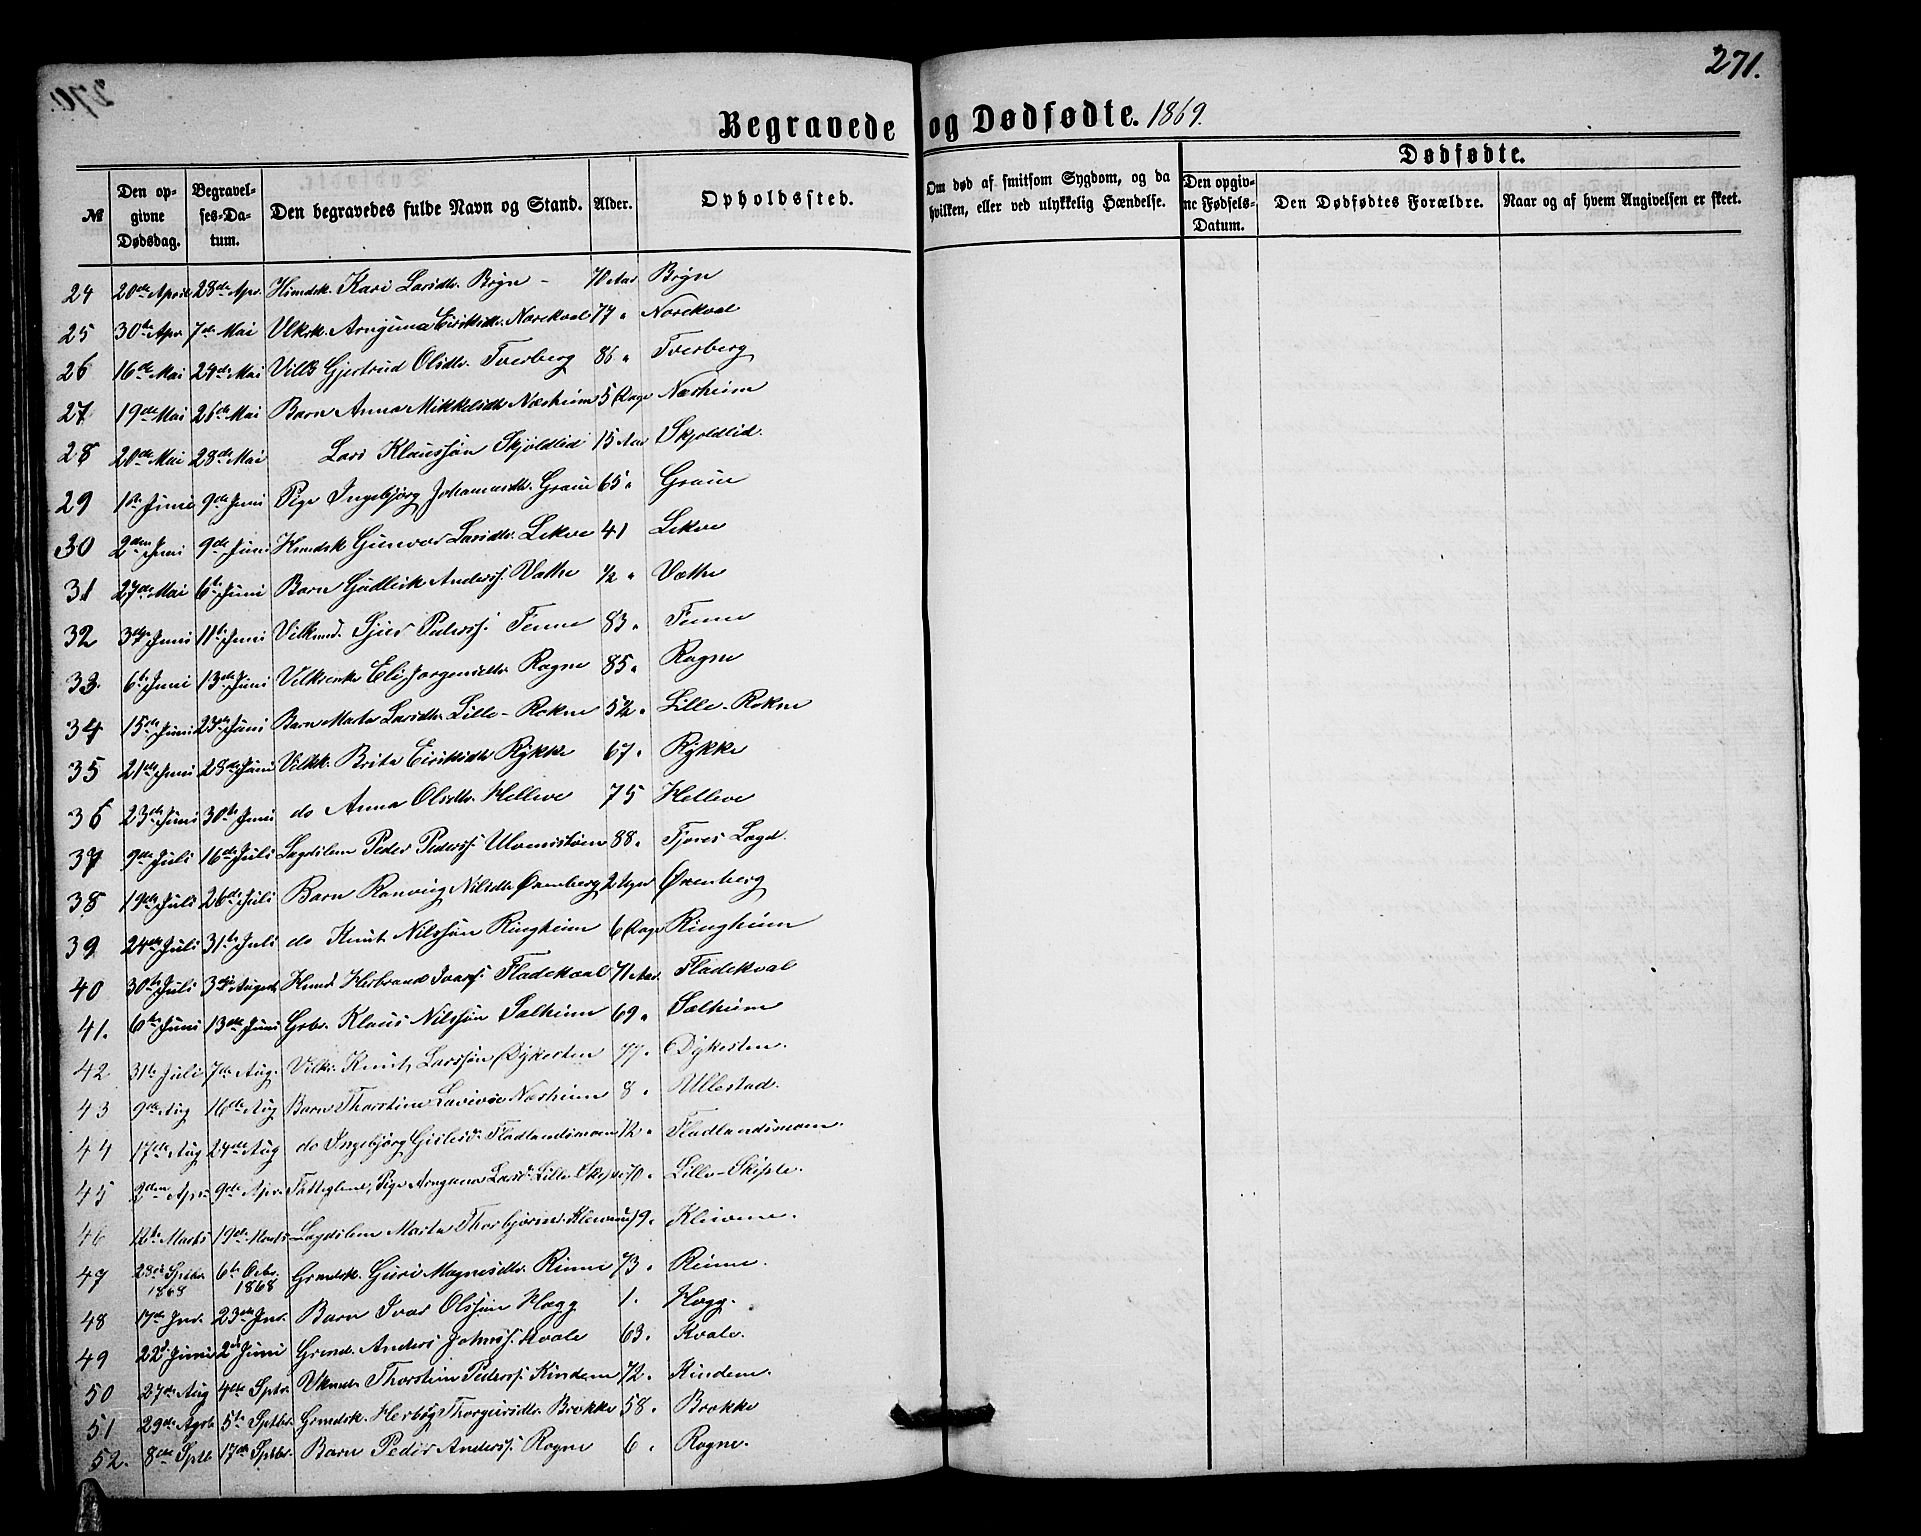 271.
Begravede og Dødfødte. 1869.
Dødfødte.
№
Den opgivne Dødsdag.
Begravelses-Datum.
Den begravedes fulde Navn og Stand.
Alder.
Opholdssted.
Om død af smitsom Sygdom, og da hvilken, eller ved ulykkelig Hændelse.
Den opgivne Fødsels-Datum.
Den Dødfødtes Forældre.
Naar og af hvem Angivelsen er skeet.
24 20de April 28de Apr. Huusmdsk. Kari Larsdtr. Bøyn - 70 Aar Bøyn
25 30te Apr 7de Mai Vlksk. Arnguna Eiriksdtr. Norekval 77 " Norekval
26 16de Mai 24de Mai Vilk Gjertrud Olsdtr. Tverberg 86 " Tverberg
27 19de Mai 26de Mai Barn Anna Mikkelsdtr Næsheim 5 Dage Næsheim
28 20de Mai 28de Mai Lars Klaussøn Skjoldlid 15 Aar Skjoldlid.
29 1ste Juni 9de Juni Pige Ingebjørg Johannesdtr. Graue 65 " Graue
30 2den Juni 9de Juni Hmdsk Gunvor Larsdtr. Lekve 41 Lekve
31 27de Mai 6te Juni Barn Gudleik Anderss. Væthe ½ " Væthe
32 3die Juni 11te Juni Vilkmd. Sjur Pederss. Tenne 83 " Tenne
33. 6te Juni 13de Juni Vilksenke Eli Jørgensdtr Rogne 85 " Rogne
34 15de Juni 23de Juni Barn Marta Larsdtr. Lille-Rokne 5½ " Lille-Rokne
35 21de Juni 28de Juni Vilkk. Brita Eiriksdtr Rykke 67 " Rykke
36 23de Juni 30te Juni do Anna Olsdtr. Helleve 75 Helleve
37 9de Juli 16de Juli Lægdslem Peder Pederss. Ulvenistøen 88 " Tjores Lægd.
38 19de Juli 26de Juli Barn Ranveig Nilsdtr Øvenberg 2 Uger Øvenberg
39 24de Juli 31te Juli do Knut Nilssøn Ringheim 6 Dage Ringheim
40 30te Juli 3die August Hmd Herbrand Ivarss. Fladekval 71 Aar Fladekval
41. 6te Juni 13de Juni Grbr. Klaus Nilssøn Sælheim 69 " Sælheim
42 31te Juli 7de Aug. Vilkr. Knut Larssøn Dykesten 77 " Dykesten.
43 9de Aug 16de Aug Barn Thorstine Næsheim 8 " Ullestad.
44 17de Aug 24de Aug do Ingebjørg Gislesd. Fladlandsmoen 12 " Fladlandsmoen.
45 2den Apr 9de Apr. Fattiglem, Pige Arnguna Larsd. Lille-Skiple 70 " Lille-Skiple.
46 12te Marts 19de Marts Lægdslem Marta Thorbjørnsd. Klevene 79 " Klevene.
47 28de Sptbr. 1868 6te Octbr. 1868 Grmdsk. Guri Magnesdtr. Rinne 73 " Rinne.
48 17de Jnr. 23de Jnr. Barn Ivar Olssøn Hægg 1. Hægg.
49 22d Juni 2d Juni Grmd. Anders Johnss. Kvale 63 " Kvale.
50 27de Aug 4de Sptr. Vkmd. Thorstein Pederss. Kindem 72 " Kindem.
51 29de Agst 5te Sptbr. Grmdsk. Herbjø Thorgeirsdtr. Brekke 58 " Brekke
52. 8de Sptb 17de Sptbr. Barn Peder Anderss. Rogne 6 " Rogne.